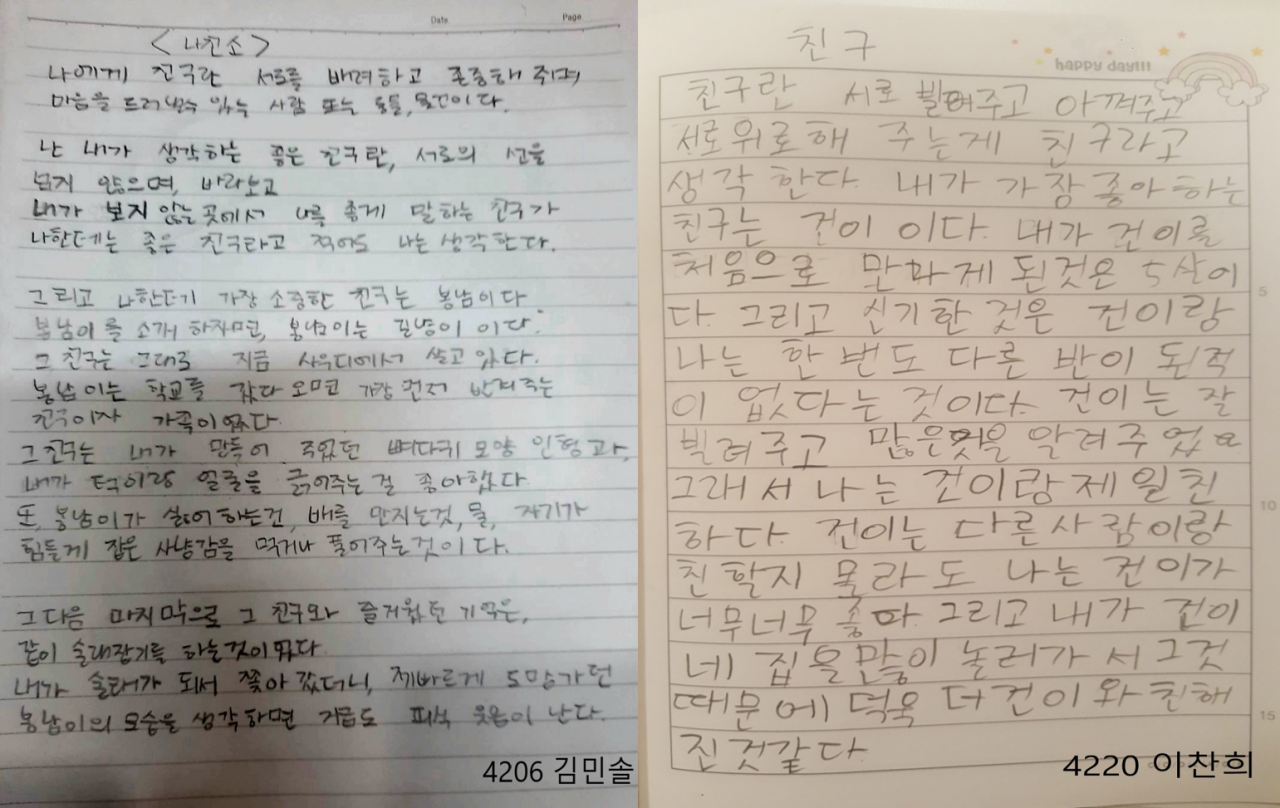 Date Page
<나친소>
나에게 친구란 서로를 배려하고 존중해 주며,
마음을 드러낼수 있는 사람 또는 동물, 물건이다.
난 내가 생각하는 좋은 친구란, 서로의 선을
넘지 않으며, 바라보고
내가 보지 않는 곳에서 나를 좋게 말하는 친구가
나한테는 좋은 친구라고 적어도 나는 생각한다.
그리고 나한테 가장 소중한 친구는 봉남이다
봉남이를 소개 하자면, 봉남이는 길냥이 이다.
그 친구는 그대로 지금 사우디에서 살고 있다.
봉남이는 학교를 갔다 오면 가장 먼저 반겨주는
친구이자 가족이였다.
그 친구는 내가 만들어 주었던 뼈다귀 모양 인형과,
내가 턱이랑 얼굴을 긁어주는 걸 좋아했다.
또, 봉남이가 싫어 하는건, 배를 만지는것, 물, 자기가
힘들게 잡은 사냥감을 먹거나 풀어주는 것이다.
그 다음 마지막으로 그 친구와 즐거웠던 기억은,
같이 술래잡기를 하는것이였다
내가 술래가 되서 쫓아 갔더니, 재빠르게 도망가던
봉남이의 모습을 생각하면 지금도 피식 웃음이 난다.
4206 김민솔
친구
happy day!!!
친구란 서로 빌려주고 아껴주고
서로위로해 주는게 친구라고
생각 한다. 내가 가장 좋아 하는
친구는 건이 이다. 내가 건이를
처음으로 만나게 된것은 5살이
5
다. 그리고 신기한 것은 건이랑
나는 한 번도 다른 반이 된적
이 없다는 것이다. 건이는 잘
빌려주고 많은것을 알려주었다
그래서 나는 건이랑 제일 친
10
하다. 건이는 다른사람이랑
친할지 몰라도 나는 건이가
너무너무 좋다. 그리고 내가 건이
네 집을 많이 놀러가 서 그것
때문에 더욱 더 건이 와 친해
15
진 것같다.
4220 이찬희